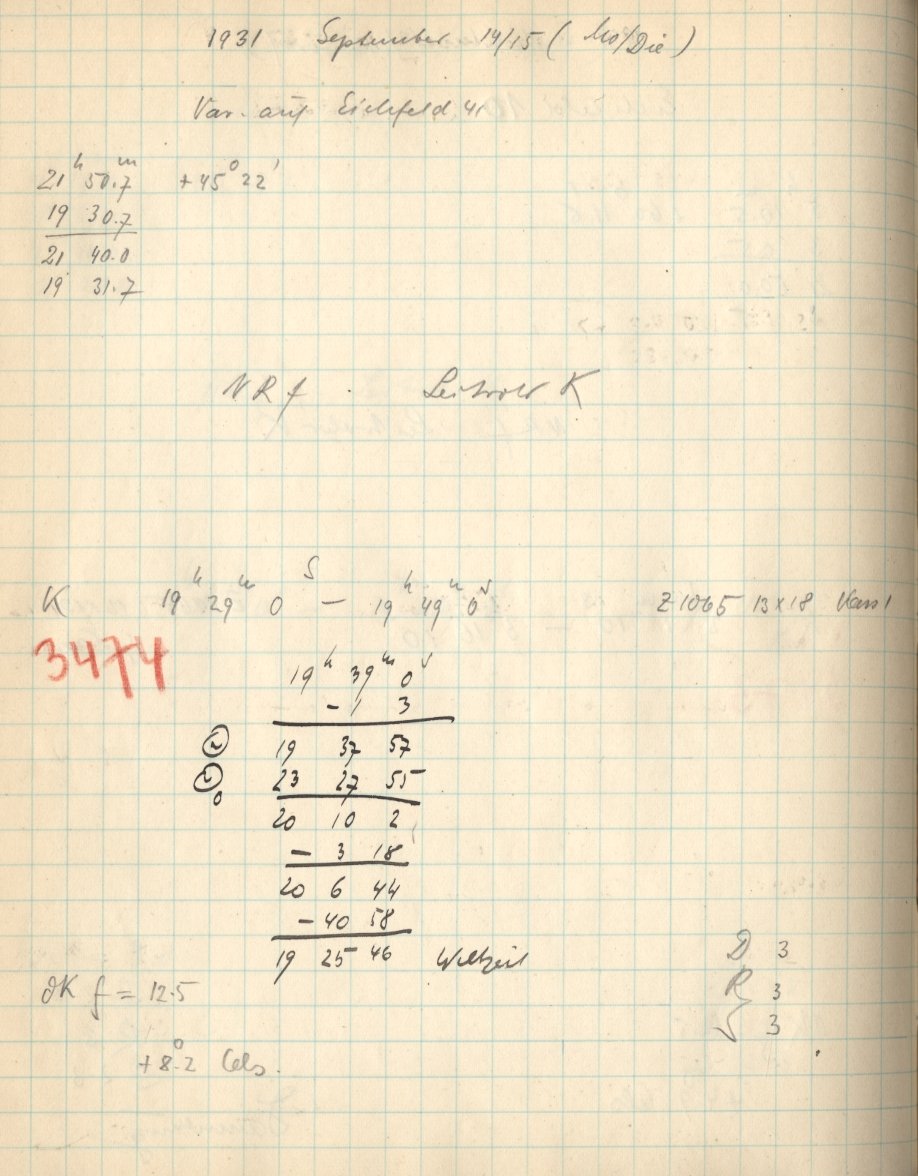 1931 September 14/15 (Mo/Die)
Var. auf Eichfeld 41
21ʰ 50.7ᵐ +45° 22'
19 30.7
21 40.0
19 31.7
NRf. K
K 19ʰ 29ᵐ 0ˢ — 19ʰ 49ᵐ 0ˢ Z1065 13x18 Kass 1
3474
19ʰ 39ᵐ 0ˢ
- 1 3
19 37 57
23 27 55
20 10 2
- 3 18
20 6 44
- 40 58
19 25 46 Weltzeit
D 3
K f = 12.5
R 3
3
+8°.2 Cels.